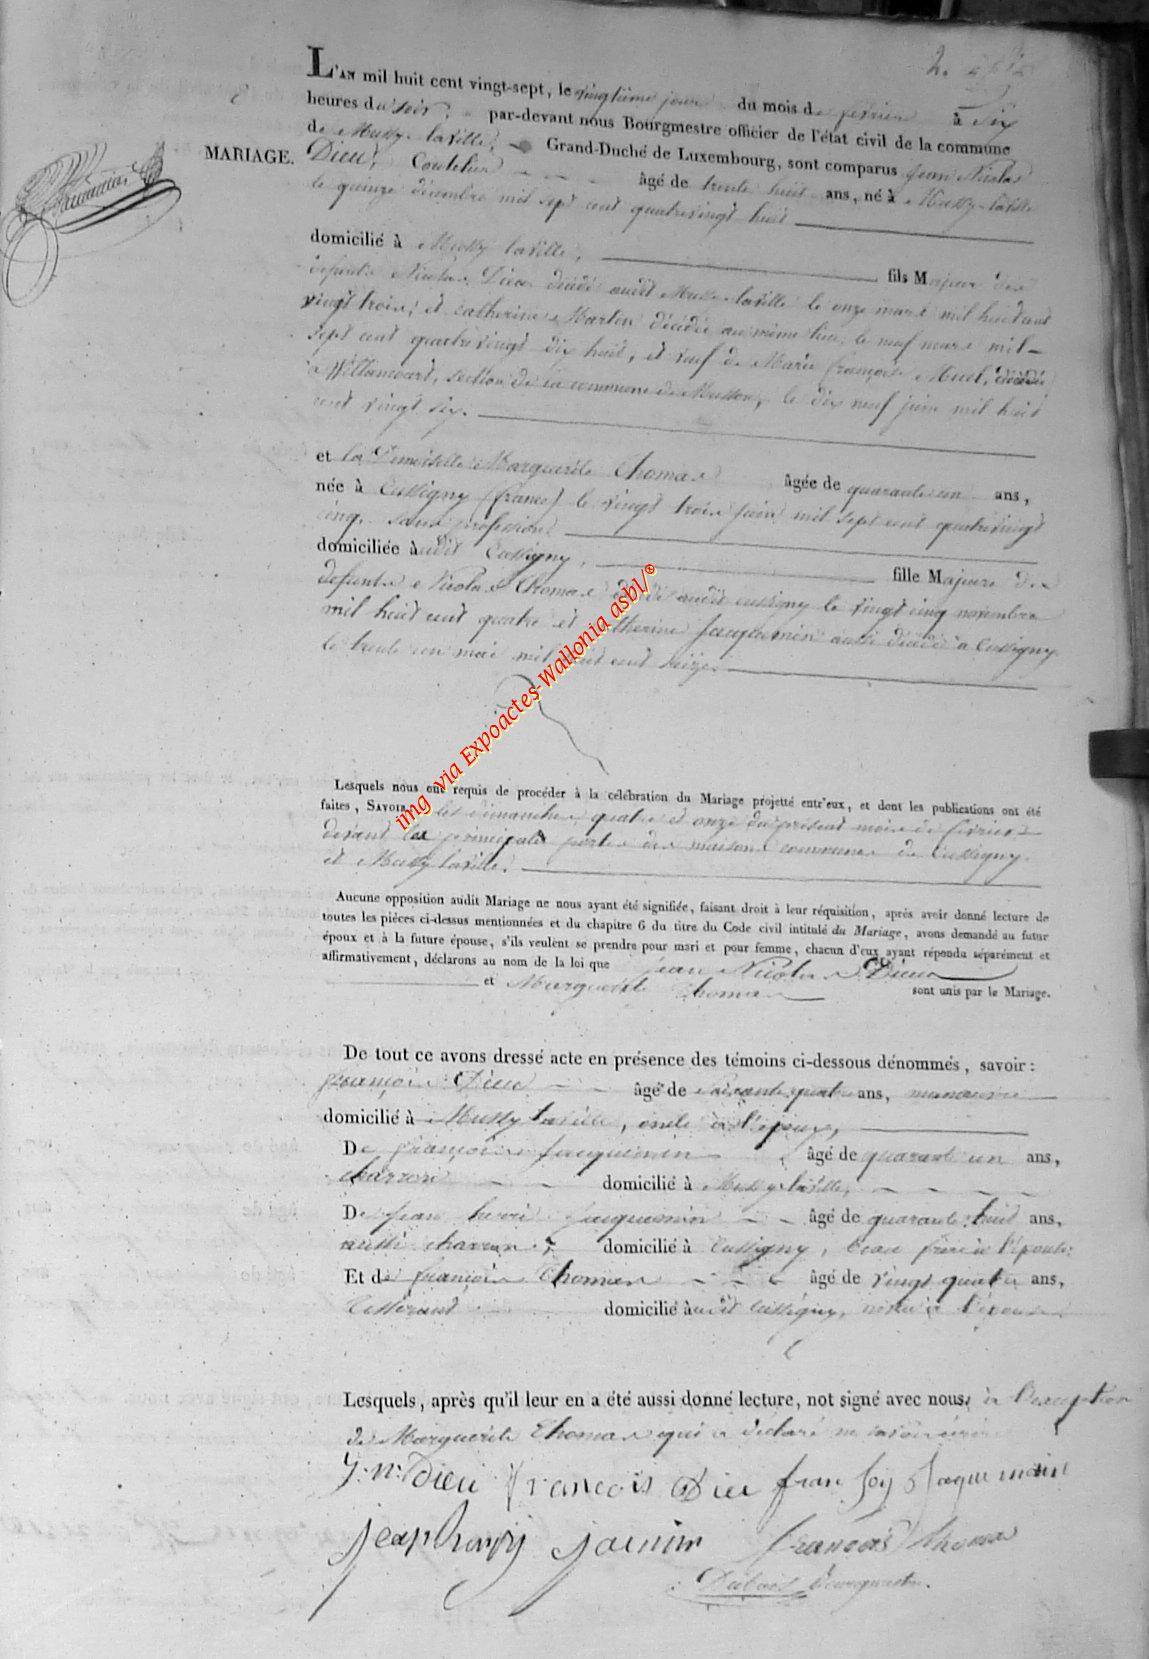 L'AN mil huit cent vingt-sept, le vingtième jour du mois de fevrier à six
heures du soir, par-devant nous Bourgmestre officier de l'état civil de la commune
de Mussy-laville, Grand-Duché de Luxembourg, sont comparus Jean Nicolas
MARIAGE.
Dieu, Coutelier âgé de trente huit ans, né à Mussy-laville
le quinze décembre mil sept cent quatrevingt huit
domicilié à Mussy laville, fils Majeur des
defunts Nicolas Dieu décédé audit Mussy-laville le onze mars mil huit cent
vingt trois; et catherine Martin décédée au même lieu, le neuf mars mil-
sept cent quatrevingt dix huit, et veuf de Marie françoise Muel, décédée
à Willancourt, section de la commune de Musson, le dix neuf juin mil huit
cent vingt six.
et la Demoiselle Marguerite Thomas âgée de quarante un ans,
née à Cussigny (france) le vingt trois juin mil sept cent quatrevingt
cinq, sans profession,
domiciliée audit Cussigny, fille Majeure des
defunts Nicolas Thomas décédé audit cussigny le vingt cinq novembre
mil huit cent quatre et catherine Jacquemin aussi décédée à Cussigny
le trente un mai mil huit cent seize.
img via Expoactes-Wallonia asbl/®
Lesquels nous ont requis de procéder à la célébration du Mariage projetté entr'eux, et dont les publications ont été
faites, SAVOIR les dimanches quatre et onze du présent mois de fevrier
devant les principales portes des maisons communes de Cussigny
et Mussy laville.
Aucune opposition audit Mariage ne nous ayant été signifiée, faisant droit à leur réquisition, après avoir donné lecture de
toutes les pièces ci-dessus mentionnées et du chapitre 6 du titre du Code civil intitulé du Mariage, avons demandé au futur
époux et à la future épouse, s'ils veulent se prendre pour mari et pour femme, chacun d'eux ayant répondu séparément et
affirmativement, déclarons au nom de la loi que Jean Nicolas Dieu
et Marguerite Thomas sont unis par le Mariage.
De tout ce avons dressé acte en présence des témoins ci-dessous dénommés, savoir:
françois Dieu âgé de soixante quatre ans, manœuvre
domicilié à Mussy laville, oncle à l'époux,
De françois Jacquemin âgé de quarante un ans,
charron domicilié à Mussy laville,
De Jean henri Jacquemin âgé de quarante huit ans,
aussi charron, domicilié à Cussigny, beau frère à l'épouse;
Et de françois Thomas âgé de vingt quatre ans,
tisserand domicilié audit Cussigny, neveu à l'épouse
Lesquels, après qu'il leur en a été aussi donné lecture, not signé avec nous, à l'exception
de Marguerite Thomas qui a déclaré ne savoir écrire
J. N. Dieu François Dieu franSoy Jaquemain
François Thomas
Bourgmestre.